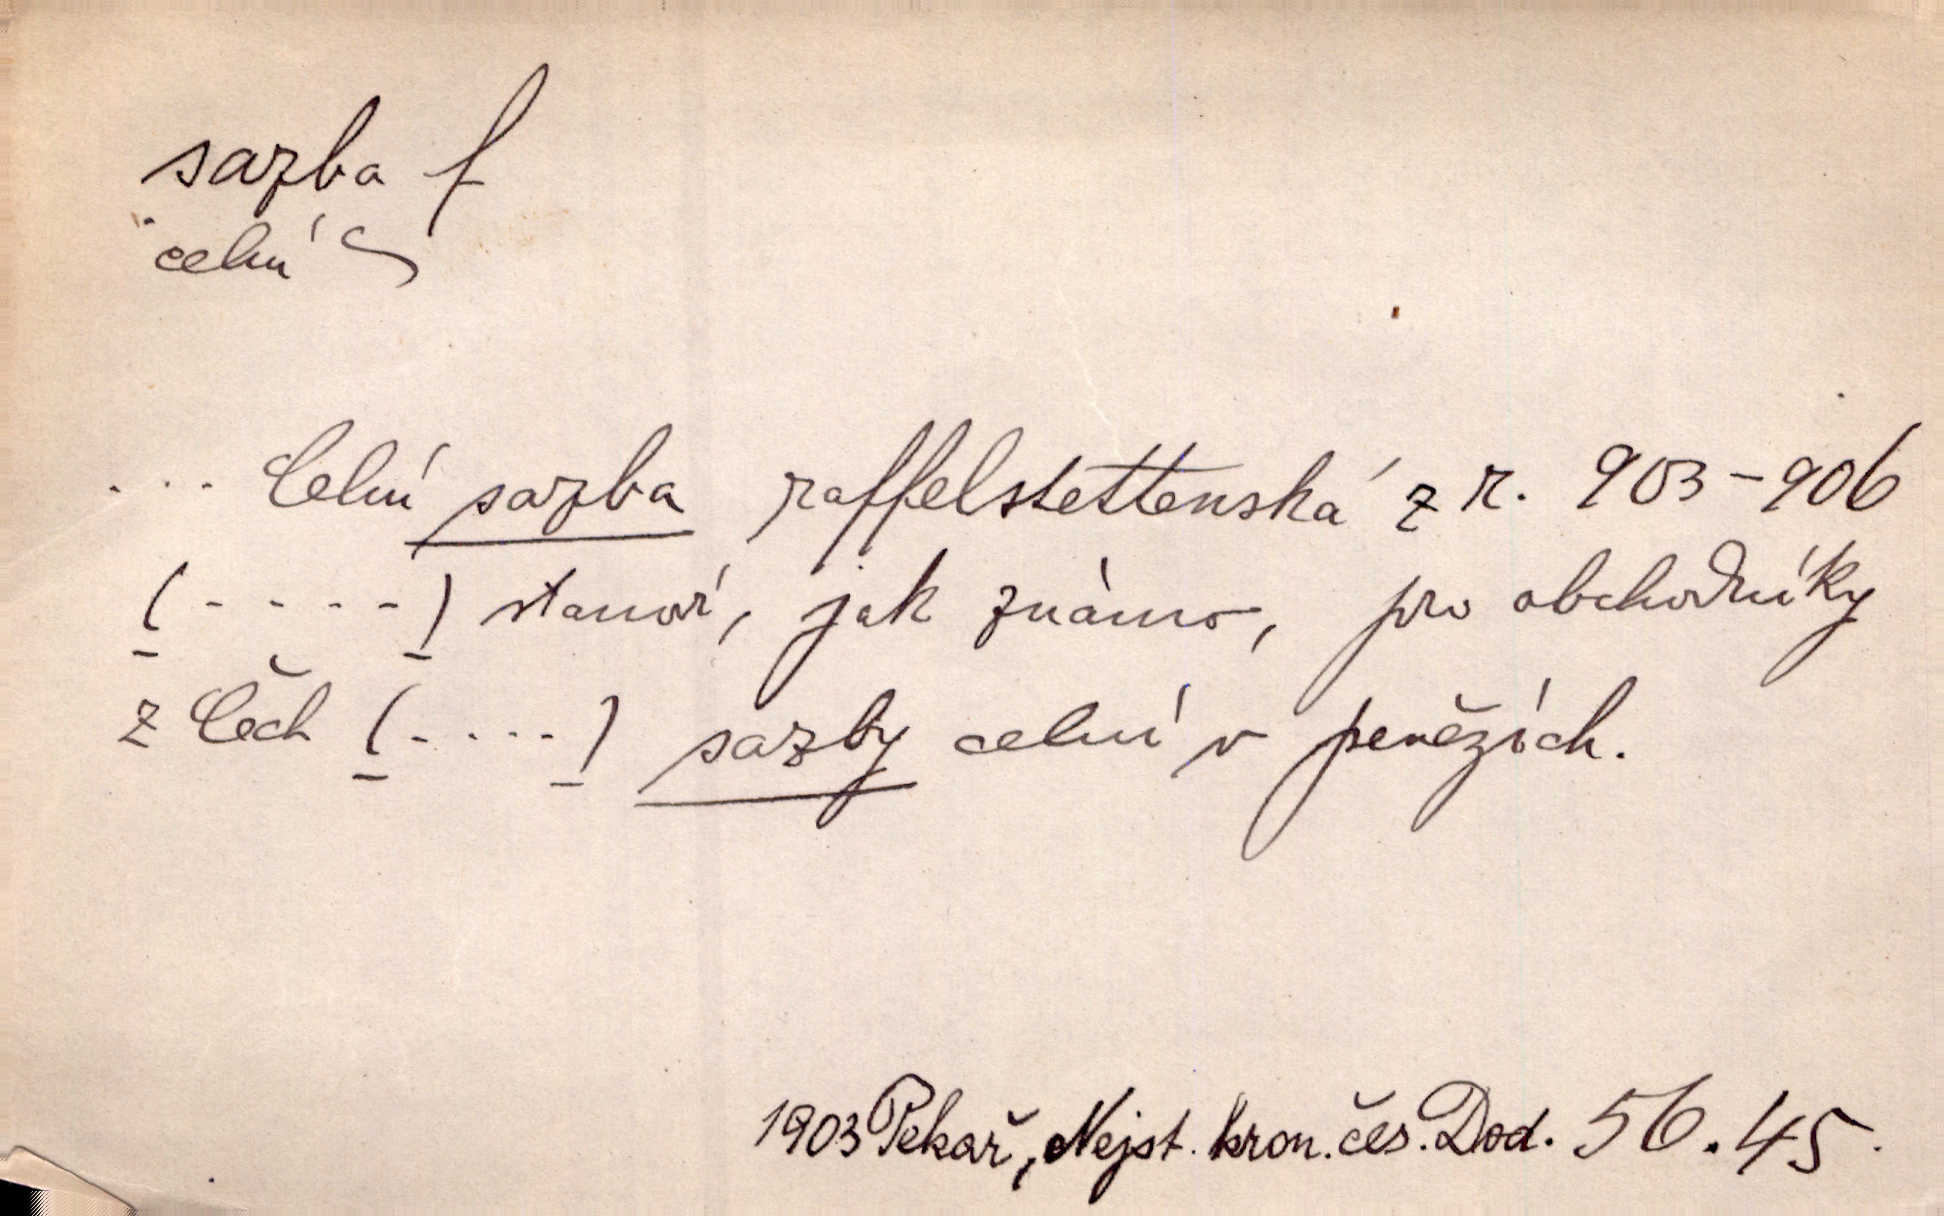 sazba f
celní ~
... Celní sazba raffelstettenská z r. 903–906
(.....) stanoví, jak známo, pro obchodníky
z Čech (.....) sazby celní v penězích.
1903 Pekař, Nejst. kron. čes. Dod. 56.45.